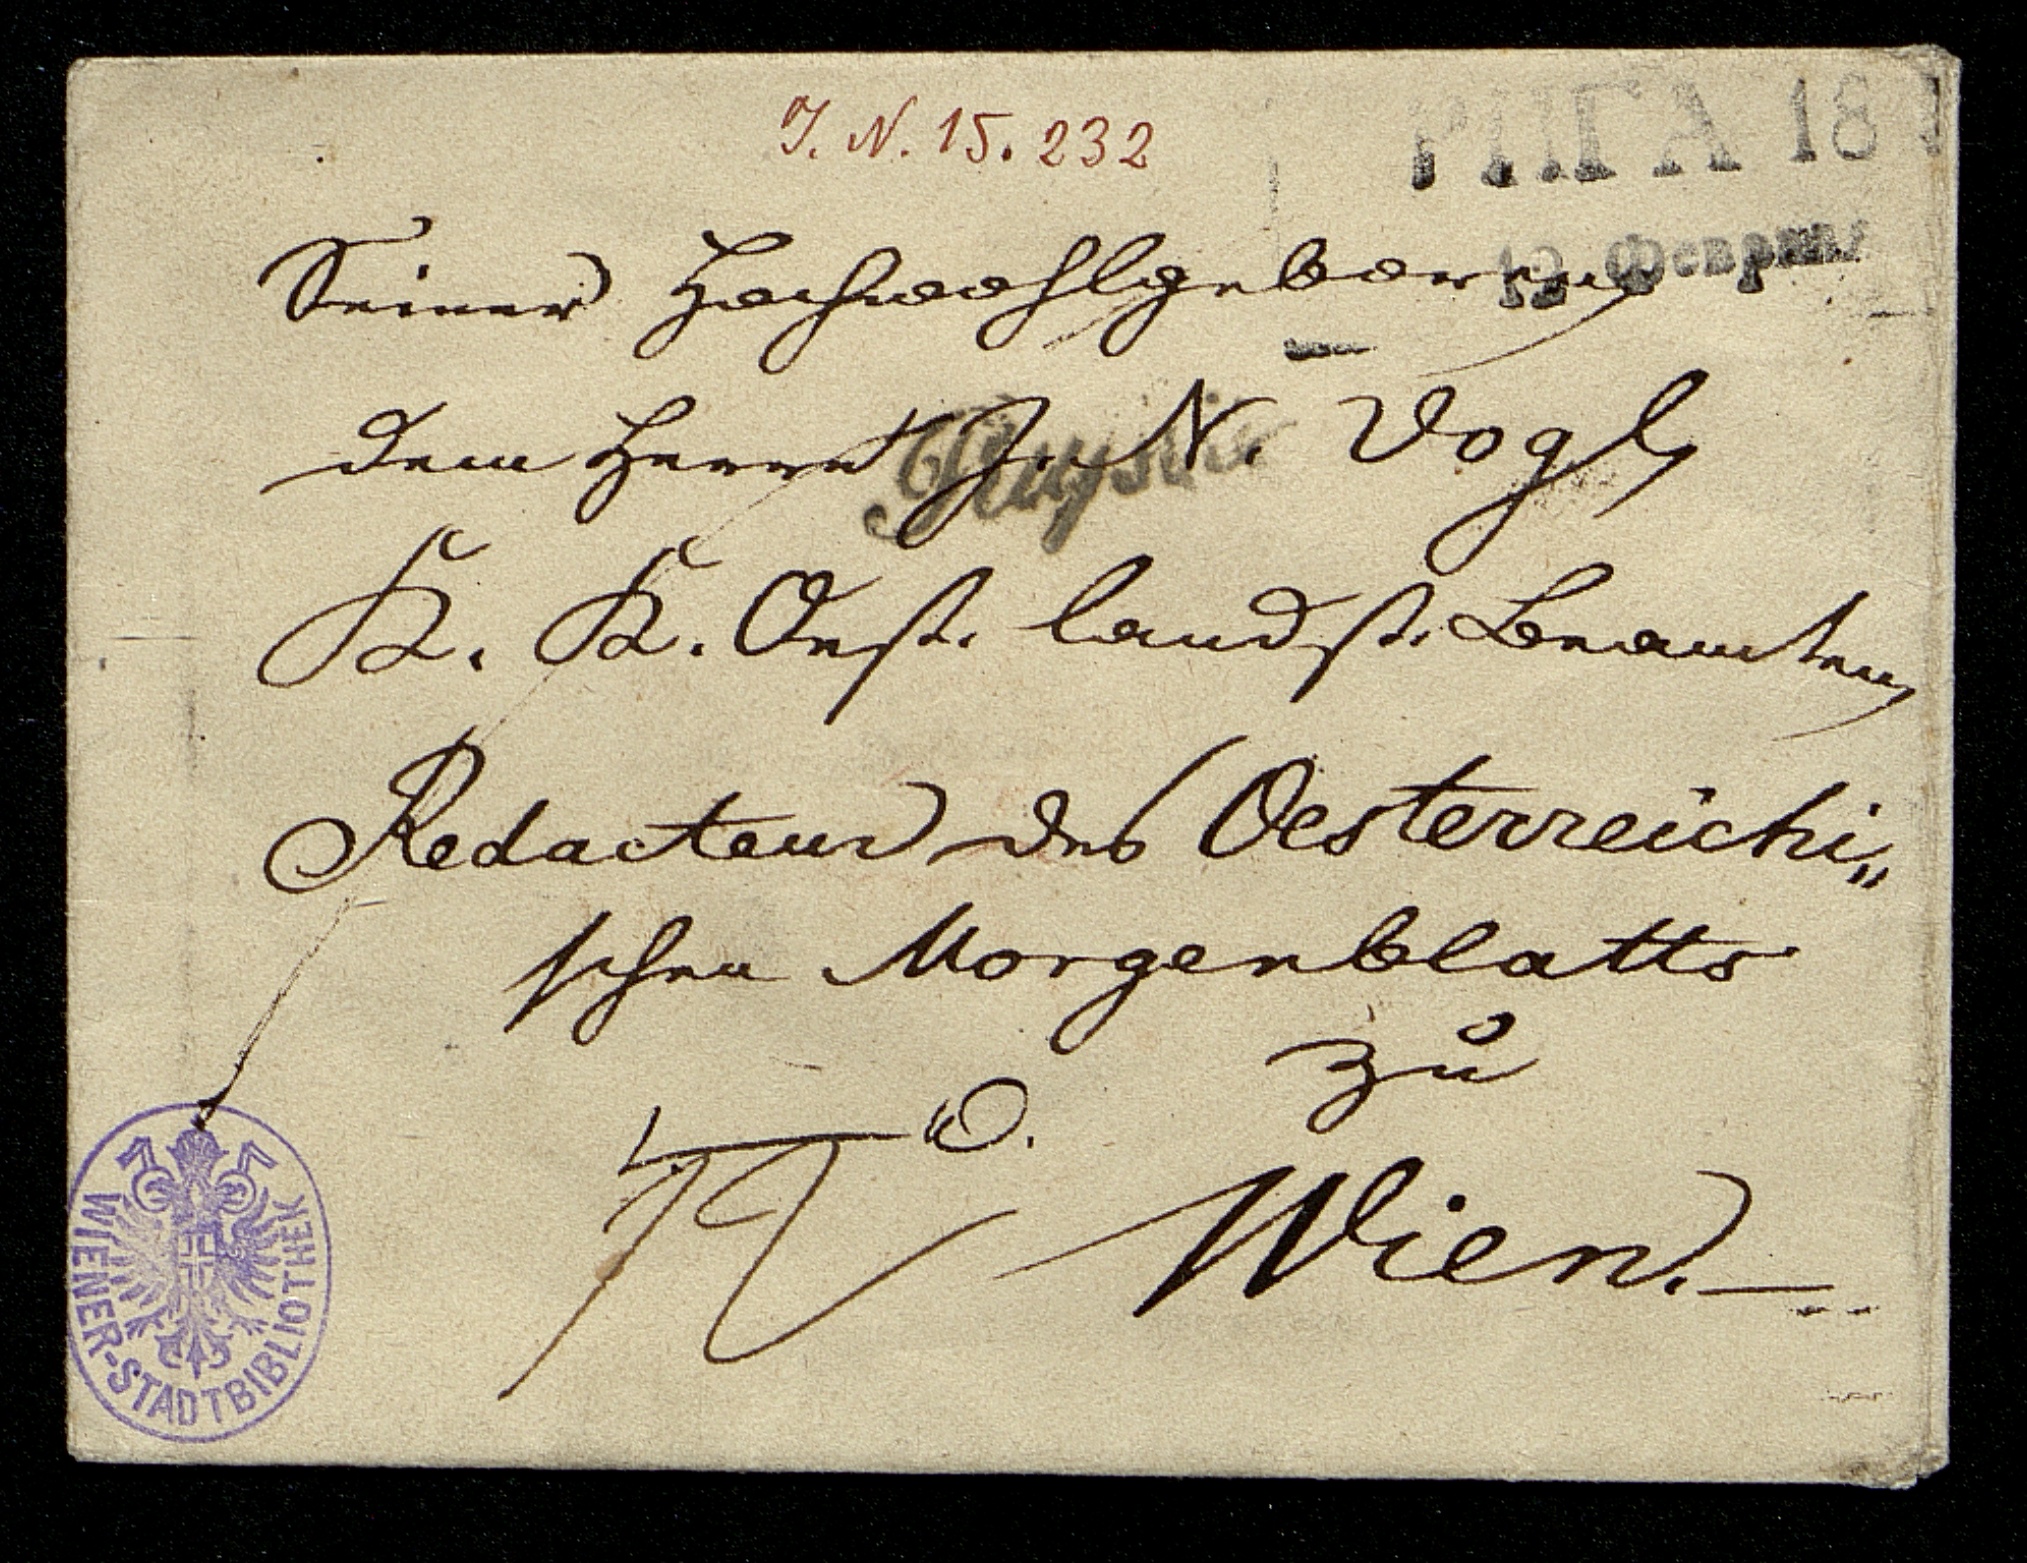 J. N. 15.232
РИГА 18
12 Февраля
Seiner Hochwohlgeboren
dem Herrn J. N. Vogl,
K. K. Oest. landst. Beamten,
Redacteur des Oesterreichi„
schen Morgenblatts
zu
Wien.
WIENER-STADTBIBLIOTHEK